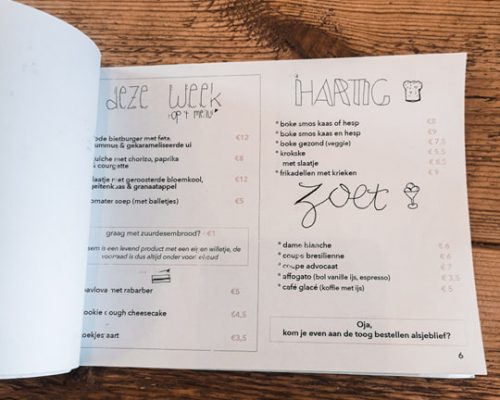 deze week
op't menu
bietburger met feta,
hummus & gekarameliseerde ui €12
met chorizo, paprika €8
& courgette
met geroosterde bloemkool, €12
geitenkaas & granaatappel
tomaten soep (met balletjes) €5
graag met zuurdesembrood? - €1
is een levend product met een eigen willetje, de
voorraad is dus altijd onder voorbehoud
pavlova met rabarber €5
cookie dough cheesecake €4,5
koekjestaart €3,5
HARTIG
* boke smos kaas of hesp €8
* boke smos kaas en hesp €9
* boke gezond (veggie) € 7,5
* krokske € 5,5
met slaatje € 8,5
* frikadellen met krieken € 9
zoet
* dame blanche € 6
* coupe bresilienne € 6
* coupe advocaat € 7
* affogato (bol vanille ijs, espresso) € 3,5
* café glacé (koffie met ijs) € 5
Oja,
kom je even aan de toog bestellen alsjeblief?
6